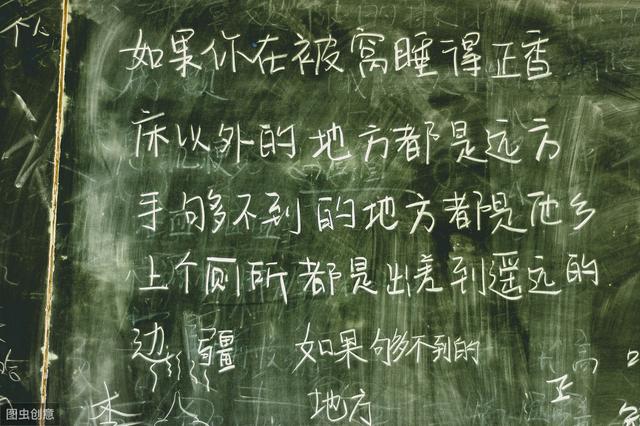 个人
如果你在被窝睡得正香
床以外的地方都是远方
手够不到的地方都是他乡
上个厕所都是出差到遥远的
边疆 如果够不到的
地方
正
图虫创意